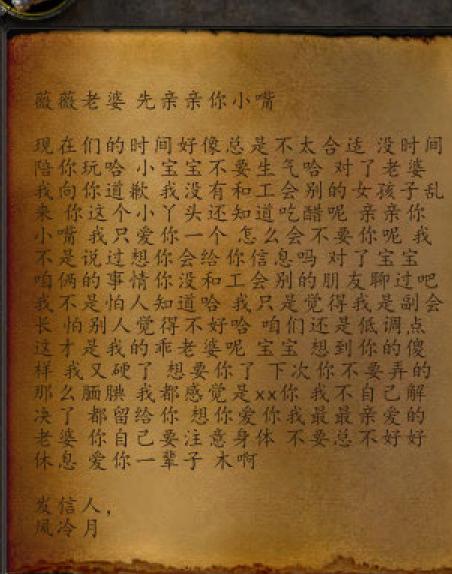 薇薇老婆 先亲亲你小嘴
现在们的时间好像总是不太合适 没时间
陪你玩哈 小宝宝不要生气哈 对了老婆
我向你道歉 我没有和工会别的女孩子乱
来 你这个小丫头还知道吃醋呢 亲亲你
小嘴 我只爱你一个 怎么会不要你呢 我
不是说过想你会给你信息吗 对了宝宝
咱俩的事情你没和工会别的朋友聊过吧
我不是怕人知道哈 我只是觉得我是副会
长 怕别人觉得不好哈 咱们还是低调点
这才是我的乖老婆呢 宝宝 想到你的傻
样 我又硬了 想要你了 下次你不要弄的
那么腼腆 我都感觉是xx你 我不自己解
决了 都留给你 想你爱你我最最亲爱的
老婆 你自己要注意身体 不要总不好好
休息 爱你一辈子 木啊
发信人，
风冷月